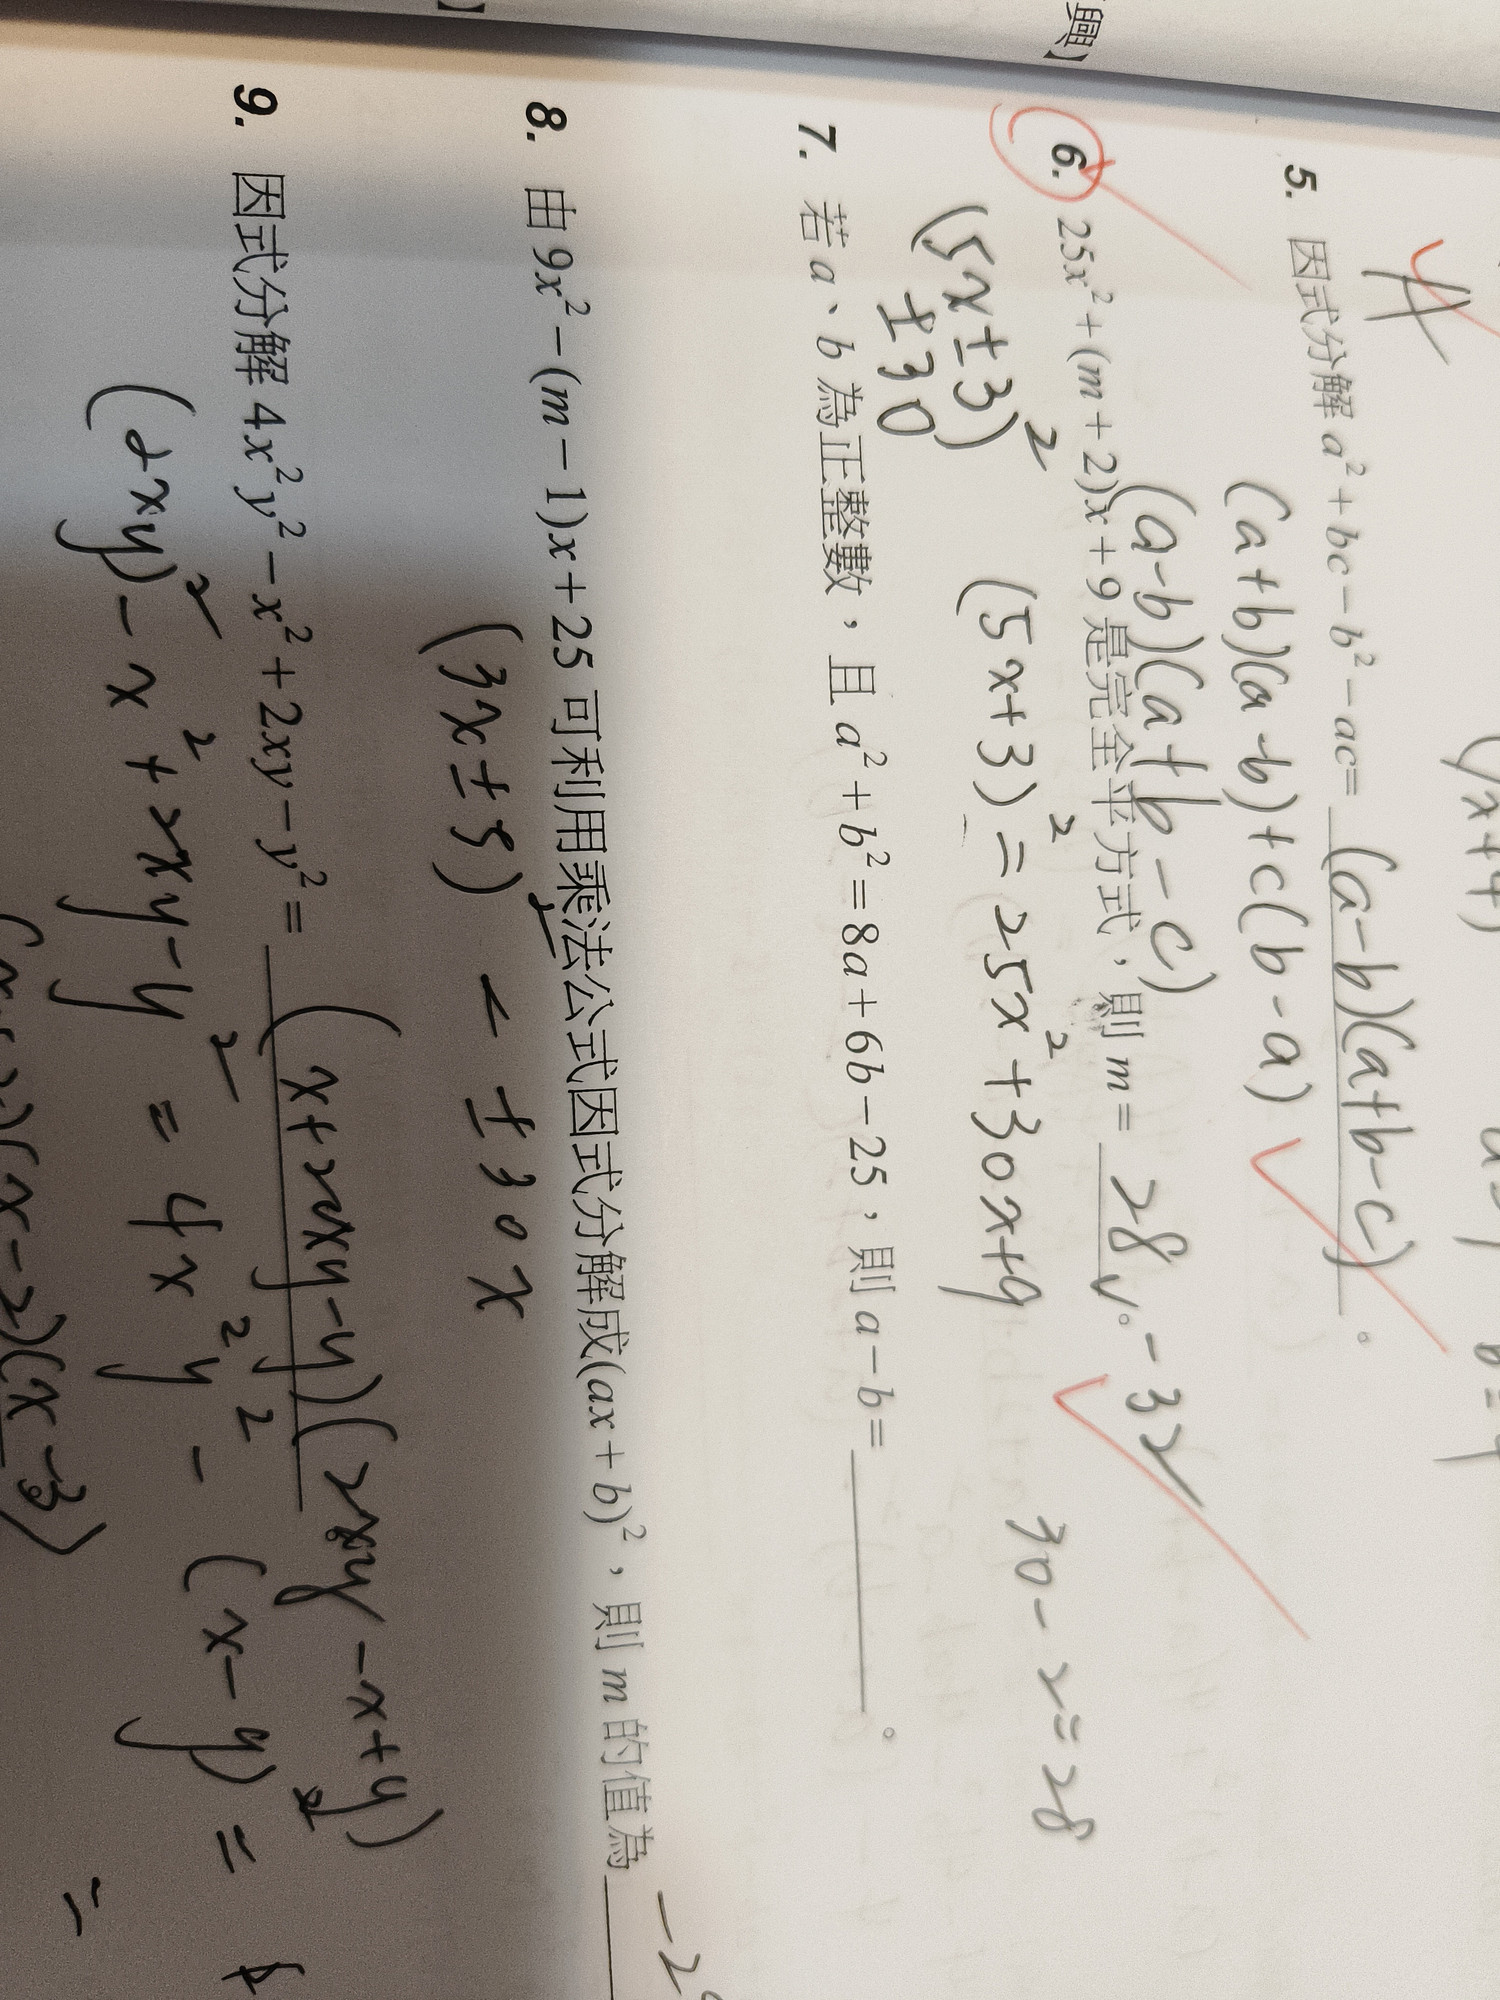 興】
】
A
5. 因式分解 a²+bc-b²-ac= (a-b)(a+b-c) 。
(a+b)(a-b)+c(b-a)
(a-b)(a+b-c)
6. 25x²+(m+2)x+9是完全平方式,則m= 28 。 -32
(5x±3)² (5x+3)²=25x²+30x+9 30-2=28
±30
7. 若a、b為正整數,且a²+b²=8a+6b-25,則a-b= 。
8. 由9x²-(m-1)x+25可利用乘法公式因式分解成(ax+b)²,則m的值為
(3x±5)² ±30x
9. 因式分解4x²y²-x²+2xy-y²= (x+2xy-y)(2xy-x+y) 。
(2xy)²-x²+2xy-y² = 4x²y²-(x-y)² =
(x-2)(x-3)